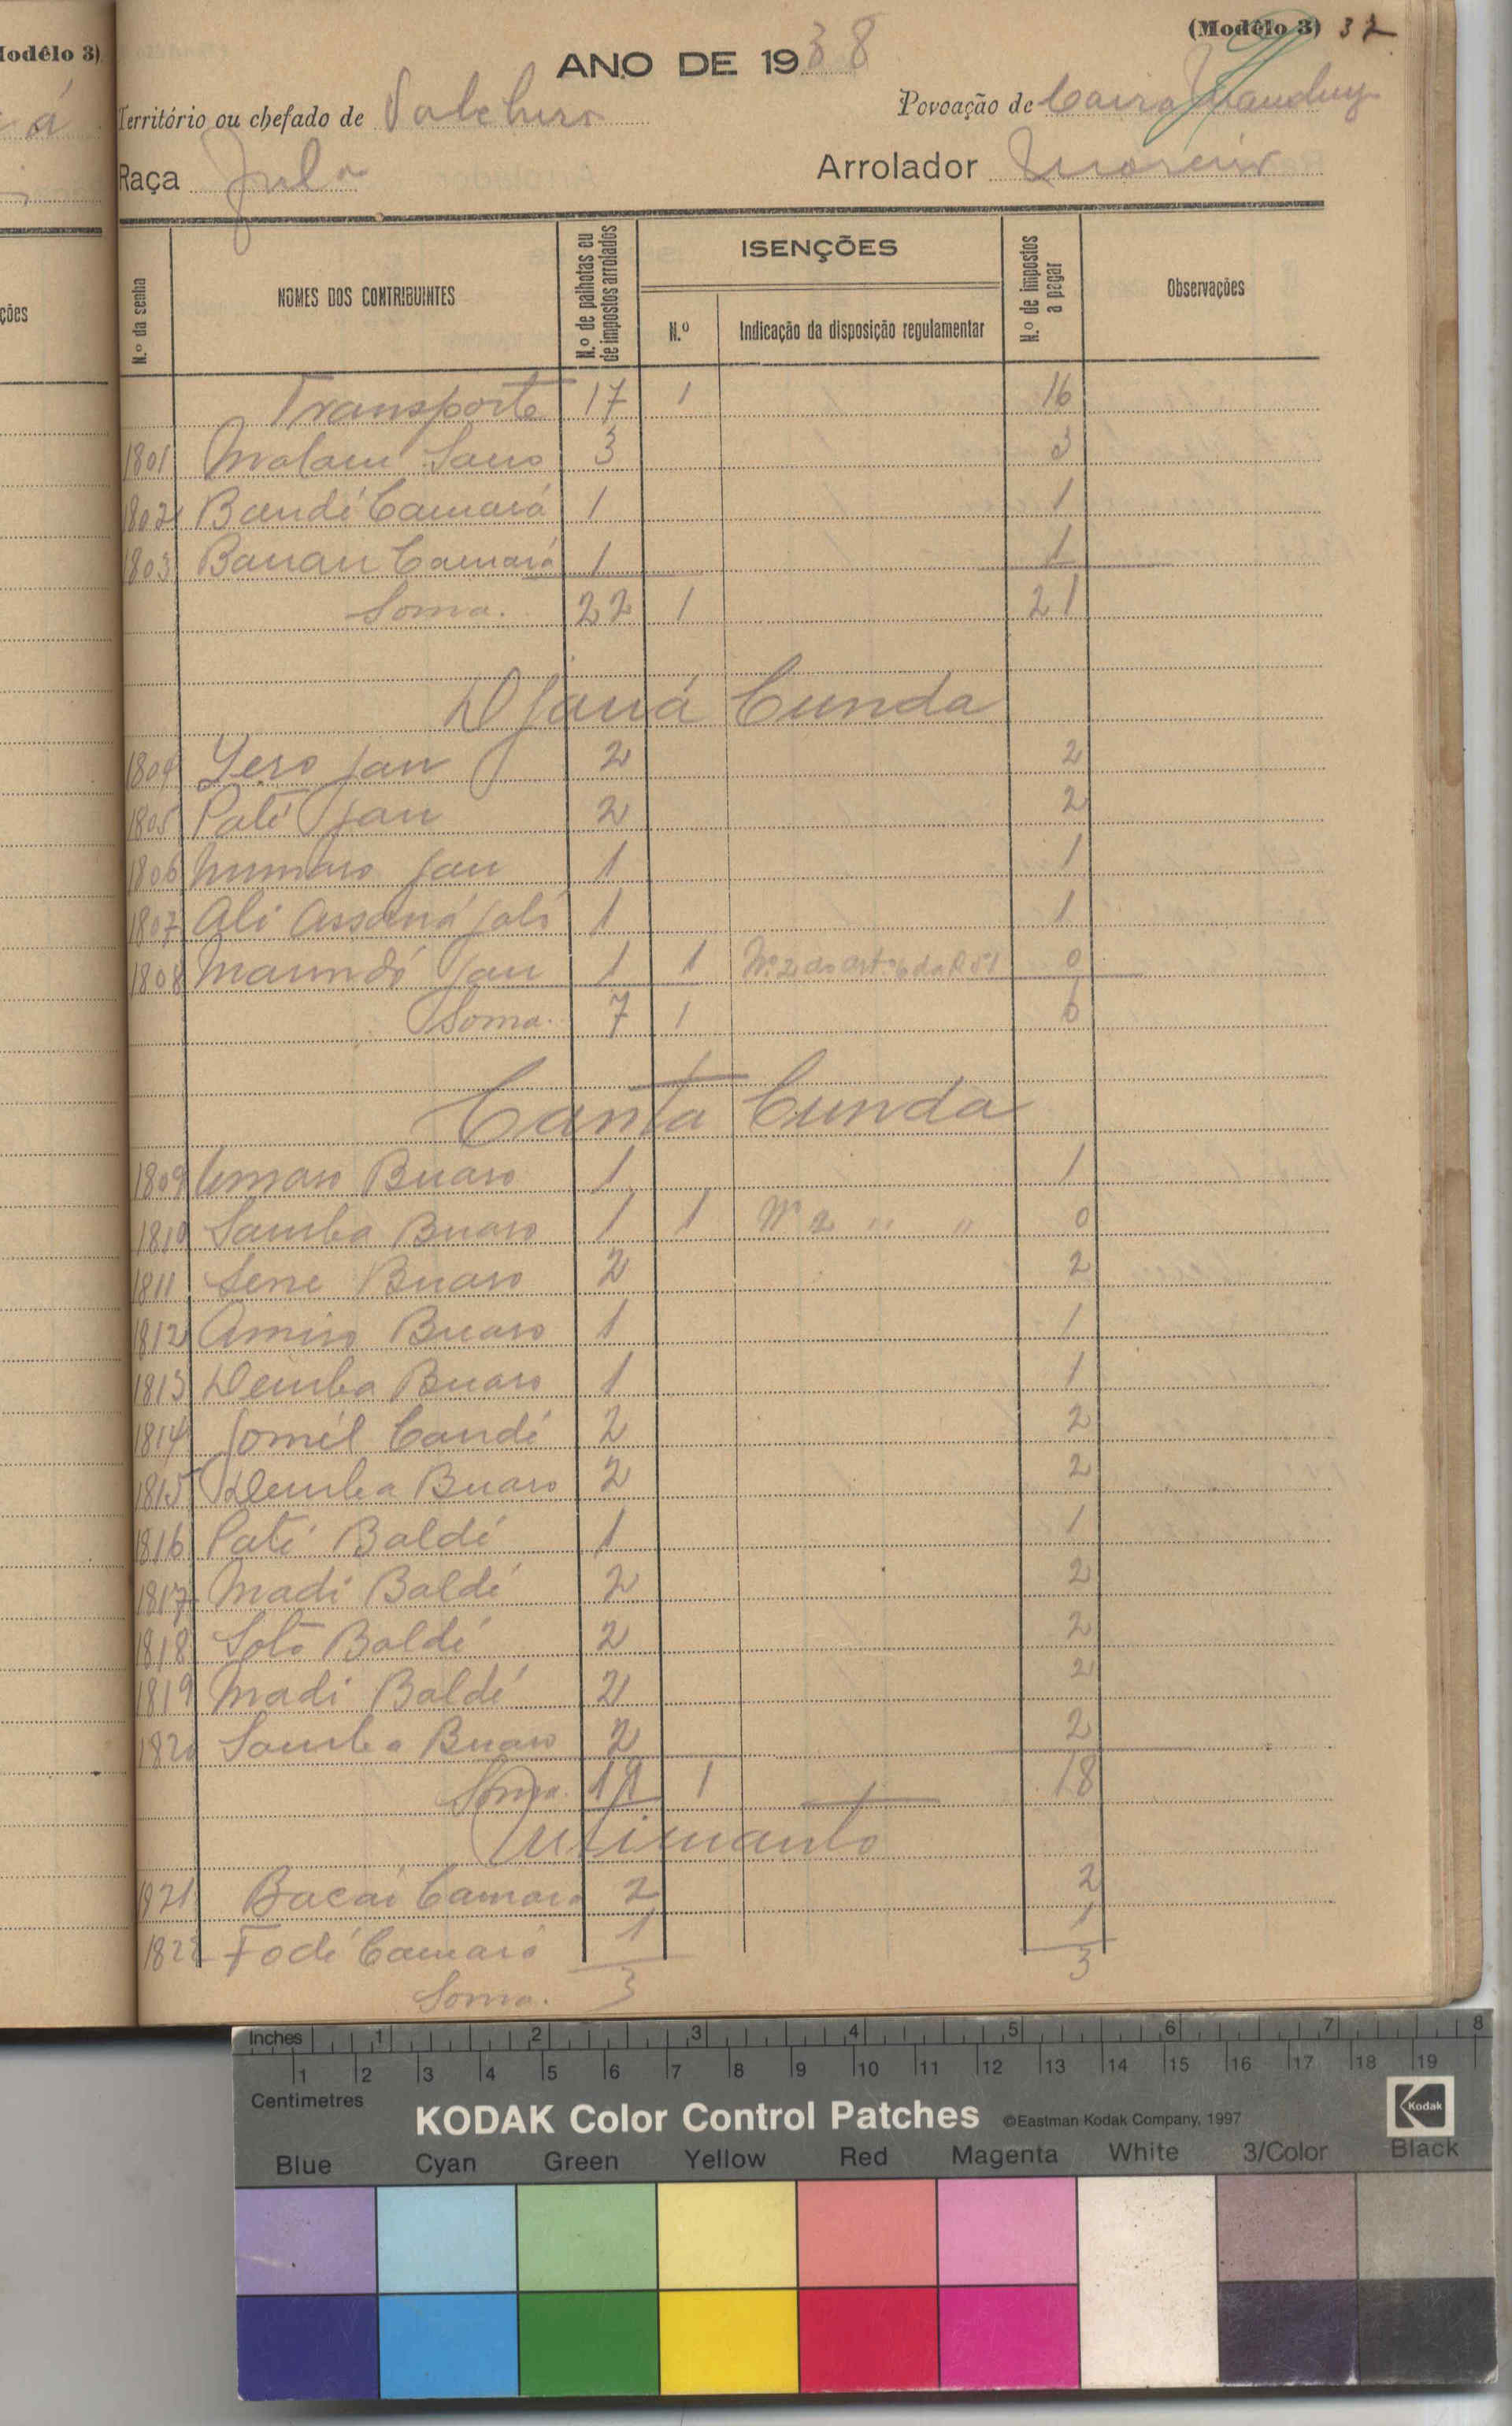 (Modêlo 3) 32
odêlo 3)
ANO DE 1938
Território ou chefado de
Povoação de
á
Raça Fula
Arrolador Moreira
ções
N.º da senha
NOMES DOS CONTRIBUINTES
N.º de palhotas ou de impostos arrolados
ISENÇÕES
N.º
Indicação da disposição regulamentar
N.º de impostos a pagar
Observações
Transporte 17 1 16
1801 Malam Sano 3 3
1802 Bandé Camará 1 1
1803 Banan Camará 1 1
Soma. 22 1 21
Djaná Cunda
1804 Jero Jau 2 2
1805 Paté Jau 2 2
1806 Jau 1 1
1807 Ali 1 1
1808 Jau 1 1 Nº 2 do artº 6 do R. 0
Soma. 7 1 6
Canta Cunda
1809 Umaro Buaro 1 1
1810 Samba Buaro 1 1 Nº 2 " " 0
1811 Sene Buaro 2 2
1812 Amiro Buaro 1 1
1813 Demba Buaro 1 1
1814 Jomél Candé 2 2
1815 Demba Buaro 2 2
1816 Paté Baldé 1 1
1817 Madi Baldé 2 2
1818 Soto Baldé 2 2
1819 Madi Baldé 2 2
1820 Samba Buaro 2 2
Soma. 19 1 18
1821 Bacai Camara 2 2
1822 Fodé Camará 1 1
Soma. 3 3
Inches 1 2 3 4 5 6 7 8
1 2 3 4 5 6 7 8 9 10 11 12 13 14 15 16 17 18 19
Centimetres
KODAK Color Control Patches ©Eastman Kodak Company, 1997 Kodak
Blue Cyan Green Yellow Red Magenta White 3/Color Black